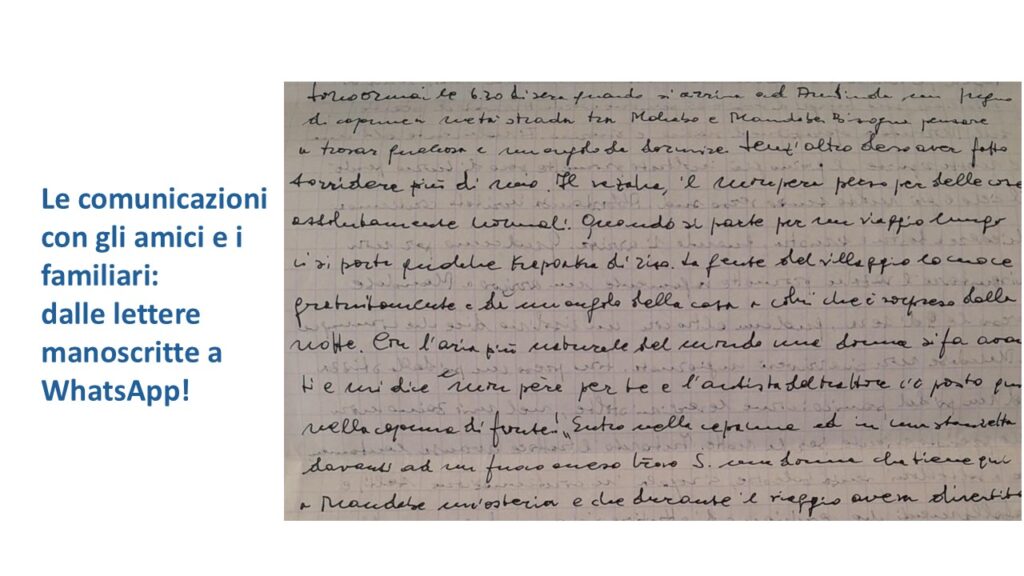 Le comunicazioni
con gli amici e i
familiari:
dalle lettere
manoscritte a
WhatsApp!
sono ormai le 6.30 di sera quando si arriva ad un
di capanne a metà strada tra e Mandabe. Bisogna pensare
a trovar qualcosa e un angolo da dormire. Senz'altro devo aver fatto
sorridere più di uno. Il vazaha, il mon père perso per delle cose
assolutamente normali! Quando si parte per un viaggio lungo
ci si porta qualche di riso. La gente del villaggio lo cuoce
gratuitamente e dà un angolo della casa a colui che è sorpreso dalla
notte. Con l'aria più naturale del mondo una donna si fa avan
ti e mi dice "mon père per te e l'autista del trattore c'è posto qui
nella capanna di fronte!" Entro nella capanna ed in una stanzetta
davanti ad un fuoco acceso trovo S. una donna che tiene qui
a Mandabe un'osteria e che durante il viaggio aveva divertito